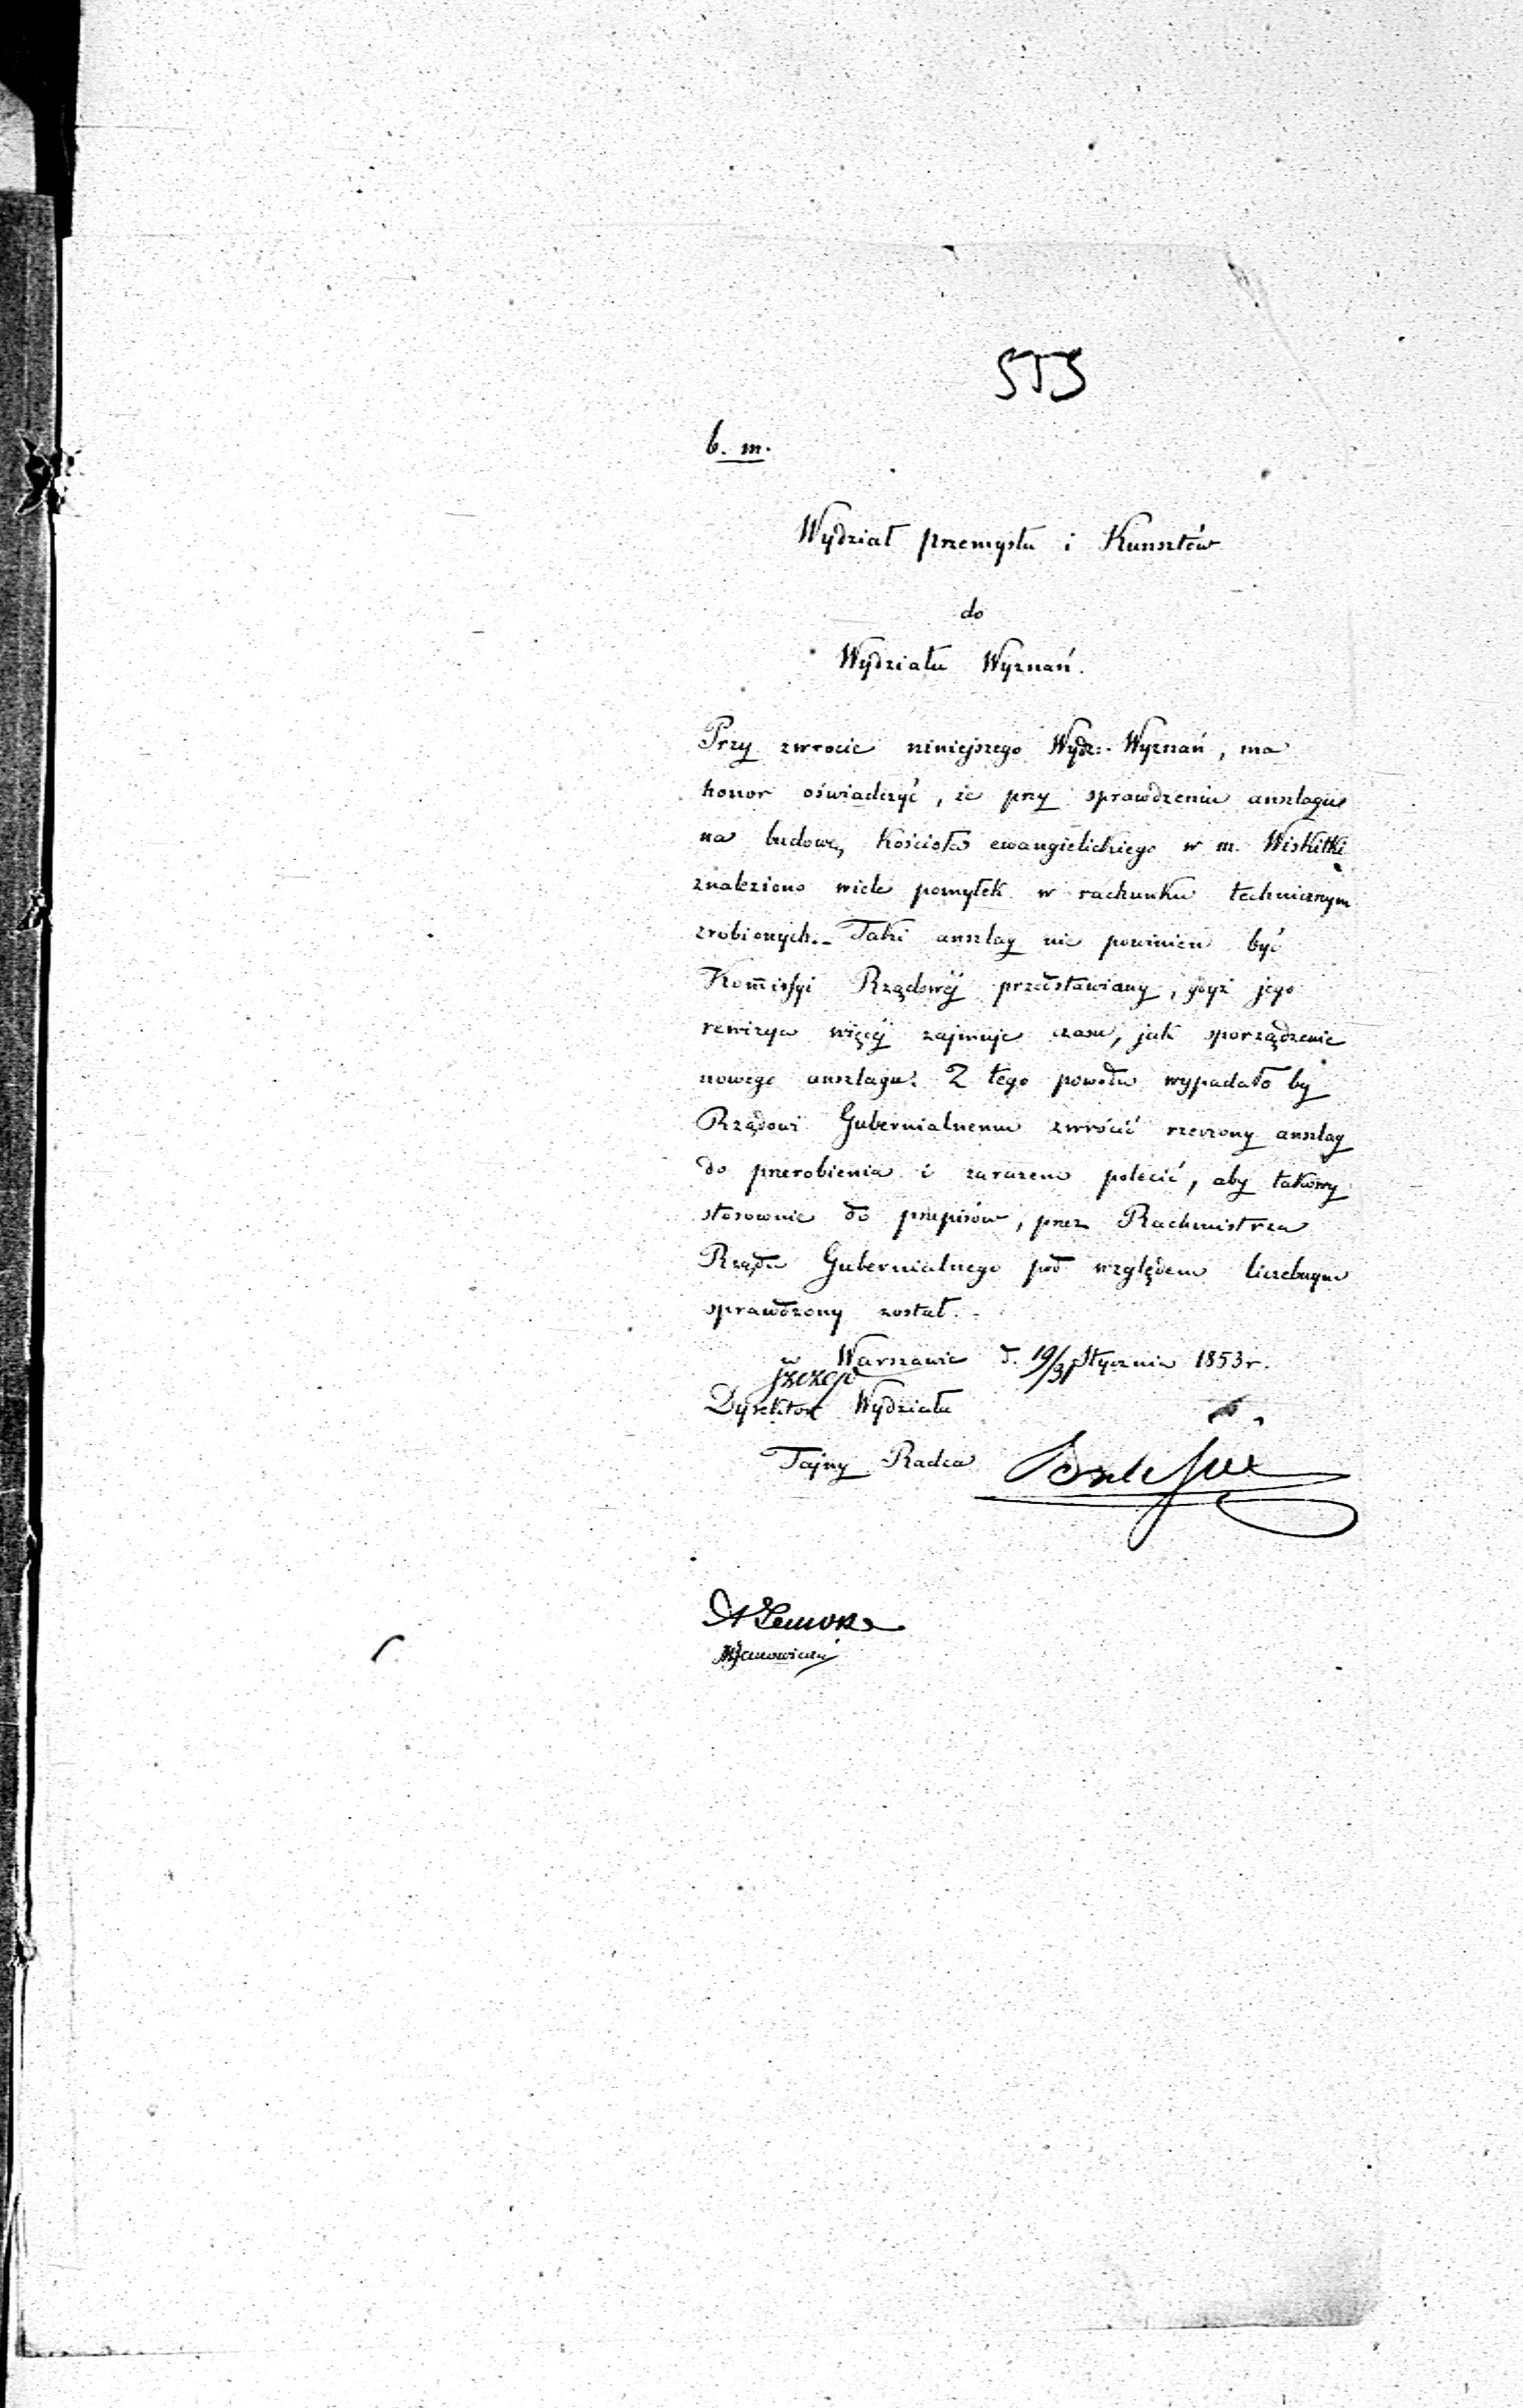 b. m.
Wydział przemysłu i Kunsztów
do
Wydziału Wyznań.
Przy zwrocie niniejszego Wydz: Wyznań, ma
honor oświadczyć, że przy sprawdzeniu anszlagu
na budowę kościoła ewangielickiego w m. Wiskitki
znaleziono wiele pomyłek w rachunku technicznym
zrobionych. – Taki anszlag nie powinien być
Kommissyi Rządowéj przedstawiany, gdyż jego
rewizya więcéj zajmuje czasu, jak sporządzenie
nowego anszlagu. Z tego powodu wypadało by
Rządowi Gubernialnemu zwrócić rzeczony anszlag
do przerobienia i zarazem polecić, aby takowy
stosownie do przepisów, przez Rachmistrza
Rządu Gubernialnego pod względem liczebnym
sprawdzony został. –
w Warszawie d. 19/31 Stycznia 1853 r.
Dyrektor Wydziału
Tajny Radca